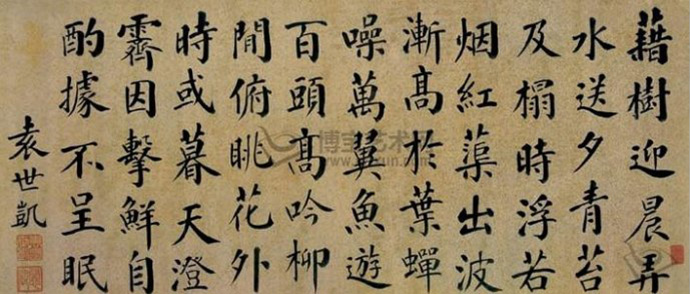 藉樹迎晨弄
水送夕青苔
及榻時浮若
烟紅蕖出波
漸高於葉蟬
噪萬翼魚遊
百頭高吟柳
閒俯眺花外
時或暮天澄
霽因擊鮮自
酌據不呈眠
袁世凱
博宝艺术网